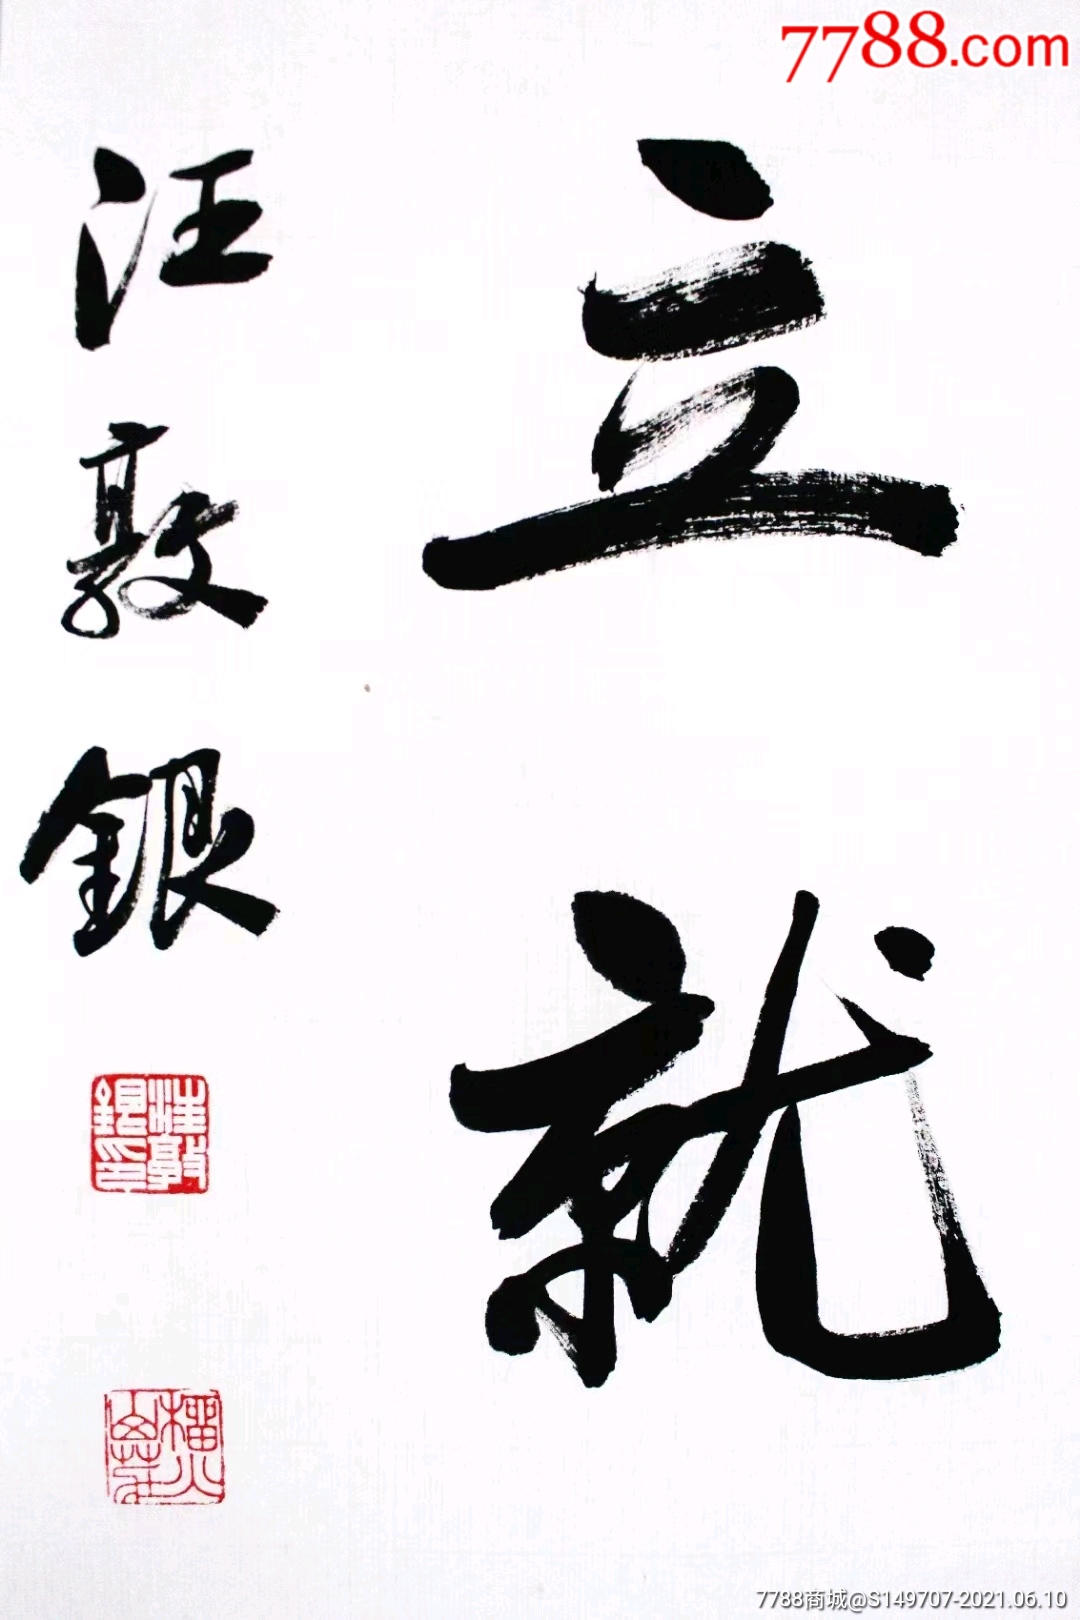 7788.com
立就
汪敦銀
汪敦
銀印
7788商城@S149707-2021.06.10